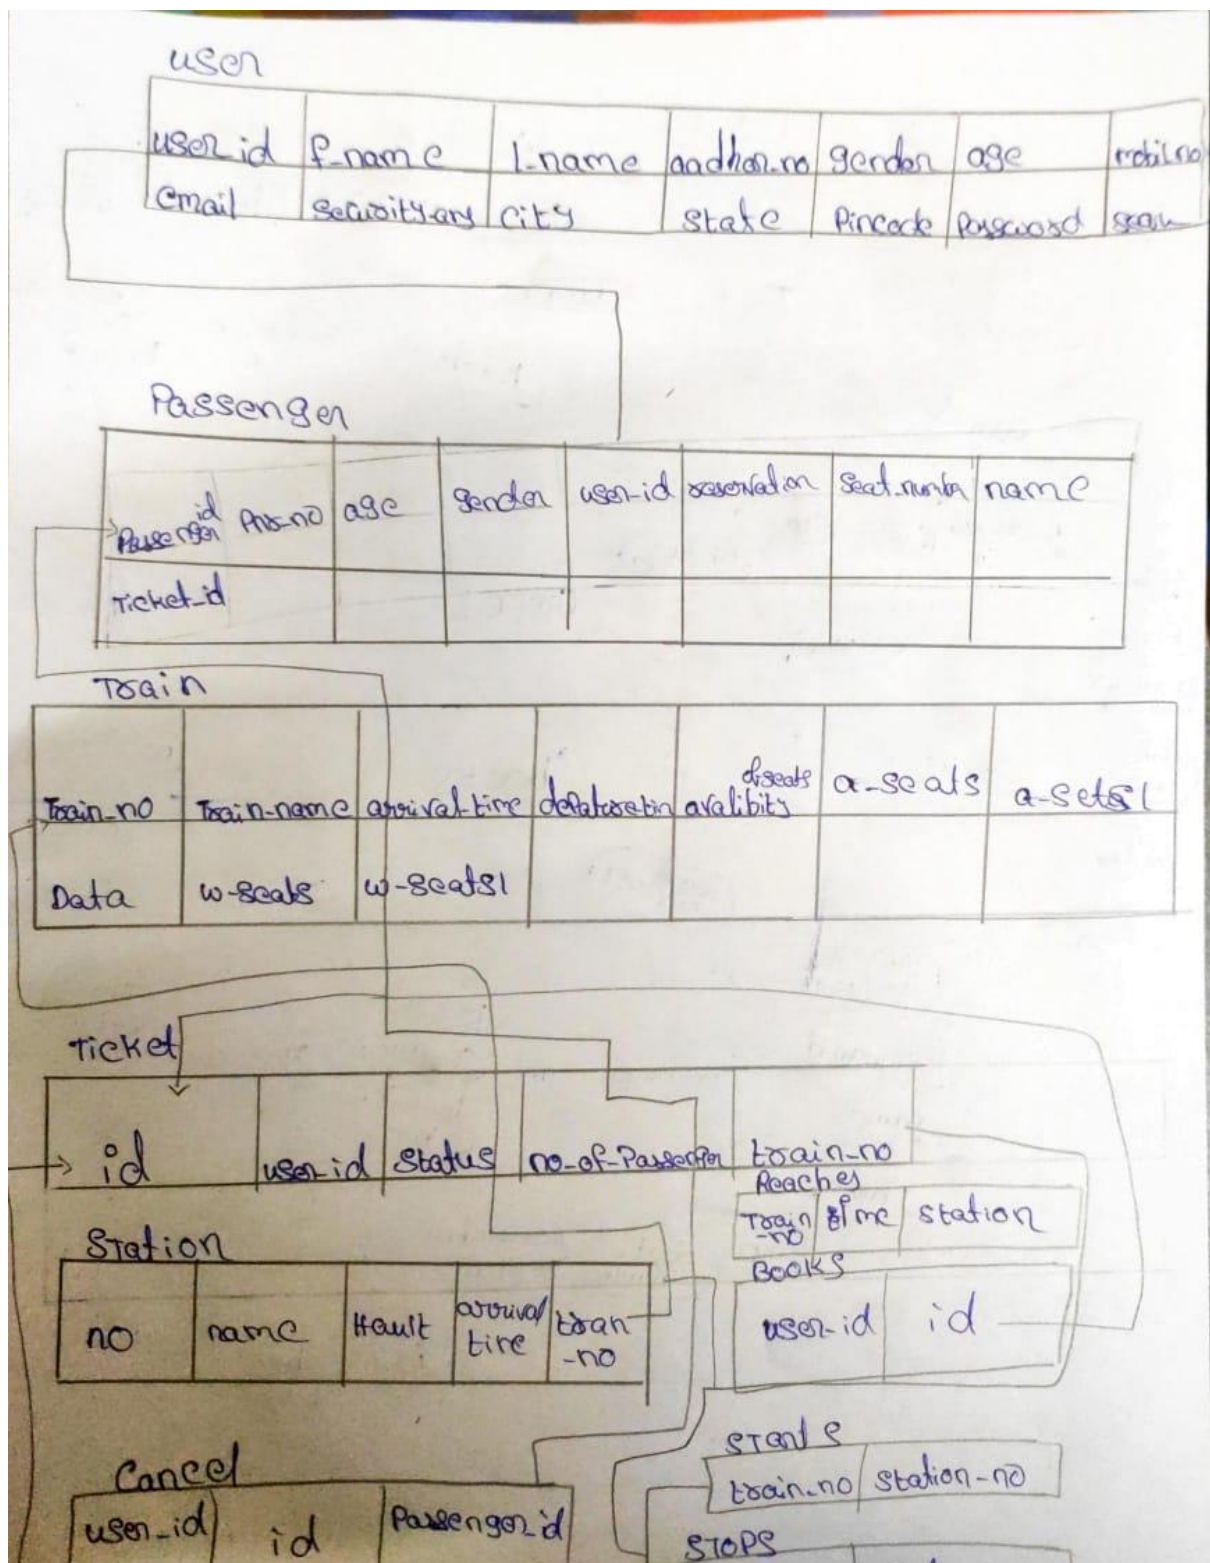 user
user_id f-name l-name aadhar_no gender age mobil.no
email security-ans city state Pincode Password
Passenger
id
Passenger Pnr-no age gender user-id reservation Seat-number name
Ticket_id
Train
of seats
Train-no Train-name arrival-time avalibity a-seats
Data w-seats w-seats1
Ticket
id user-id Status no-of-Passenger train-no
Reaches
Train time station
-no
Station
BOOKS
no name Hault arrival tran user-id id
time -no
STARTS
train-no station-no
Cancel
user-id id Passenger_id
STOPS